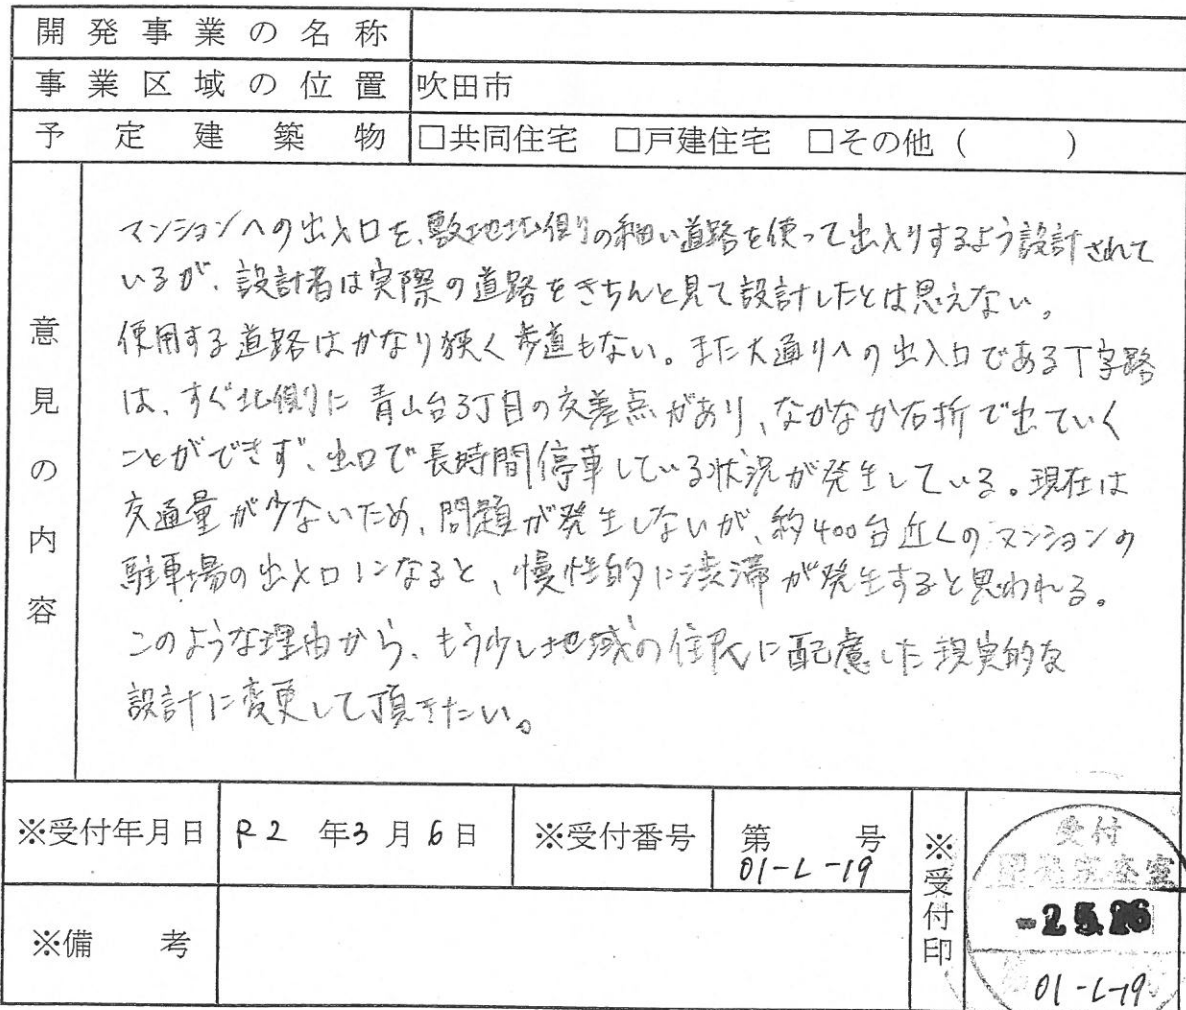 開発事業の名称
事業区域の位置 吹田市
予定建築物 □共同住宅 □戸建住宅 □その他（ ）
意見の内容
マンションへの出入口を、敷地北側の細い道路を使って出入りするよう設計されて
いるが、設計者は実際の道路をきちんと見て設計したとは思えない。
使用する道路はかなり狭く歩道もない。また大通りへの出入口である丁字路
は、すぐ北側に青山台3丁目の交差点があり、なかなか右折で出ていく
ことができず、出口で長時間停車している状況が発生している。現在は
交通量が少ないため、問題が発生しないが、約400台近くのマンションの
駐車場の出入口になると、慢性的に渋滞が発生すると思われる。
このような理由から、もう少し地域の住民に配慮した現実的な
設計に変更して頂きたい。
※受付年月日 R2 年3月6日 ※受付番号 第 号
01-L-19
※受付印
受付
開発審査室
01-L-19
※備考